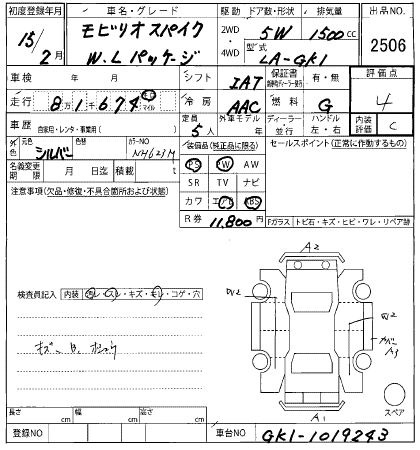 初度登録年月 車名・グレード 駆動 ドア数・形状 排気量 出品NO.
15/2月 モビリオスパイク 2WD 5W 1500cc 2506
W.Lパッケージ 4WD 型式 LA-GK1
車検 年 月 シフト IAT 保証書 有・無 評価点
走行 8万1千674 キロ マイル 冷房 AAC 燃料 G 4
車歴 自家用・レンタ・事業用( ) 定員 5人 外車モデル 年 ディーラー・並行 ハンドル 左・右 内装評価 C
外色 元色 シルバー 色替 カラーNO NH623M 装備品(純正品に限る) セールスポイント(正常に作動するもの)
名義変更期限 月 日迄 積載 t PS PW AW
注意事項(欠品・修復・不具合箇所および状態) SR TV ナビ
カワ エアB ABS
R券 11,800円 Fガラス トビ石・キズ・ヒビ・ワレ・リペア跡
A2
検査員記入 内装
キズ・コゲ・穴
A1
スペア
長さ cm 幅 cm 高さ cm
登録NO 車台NO GK1-1019243